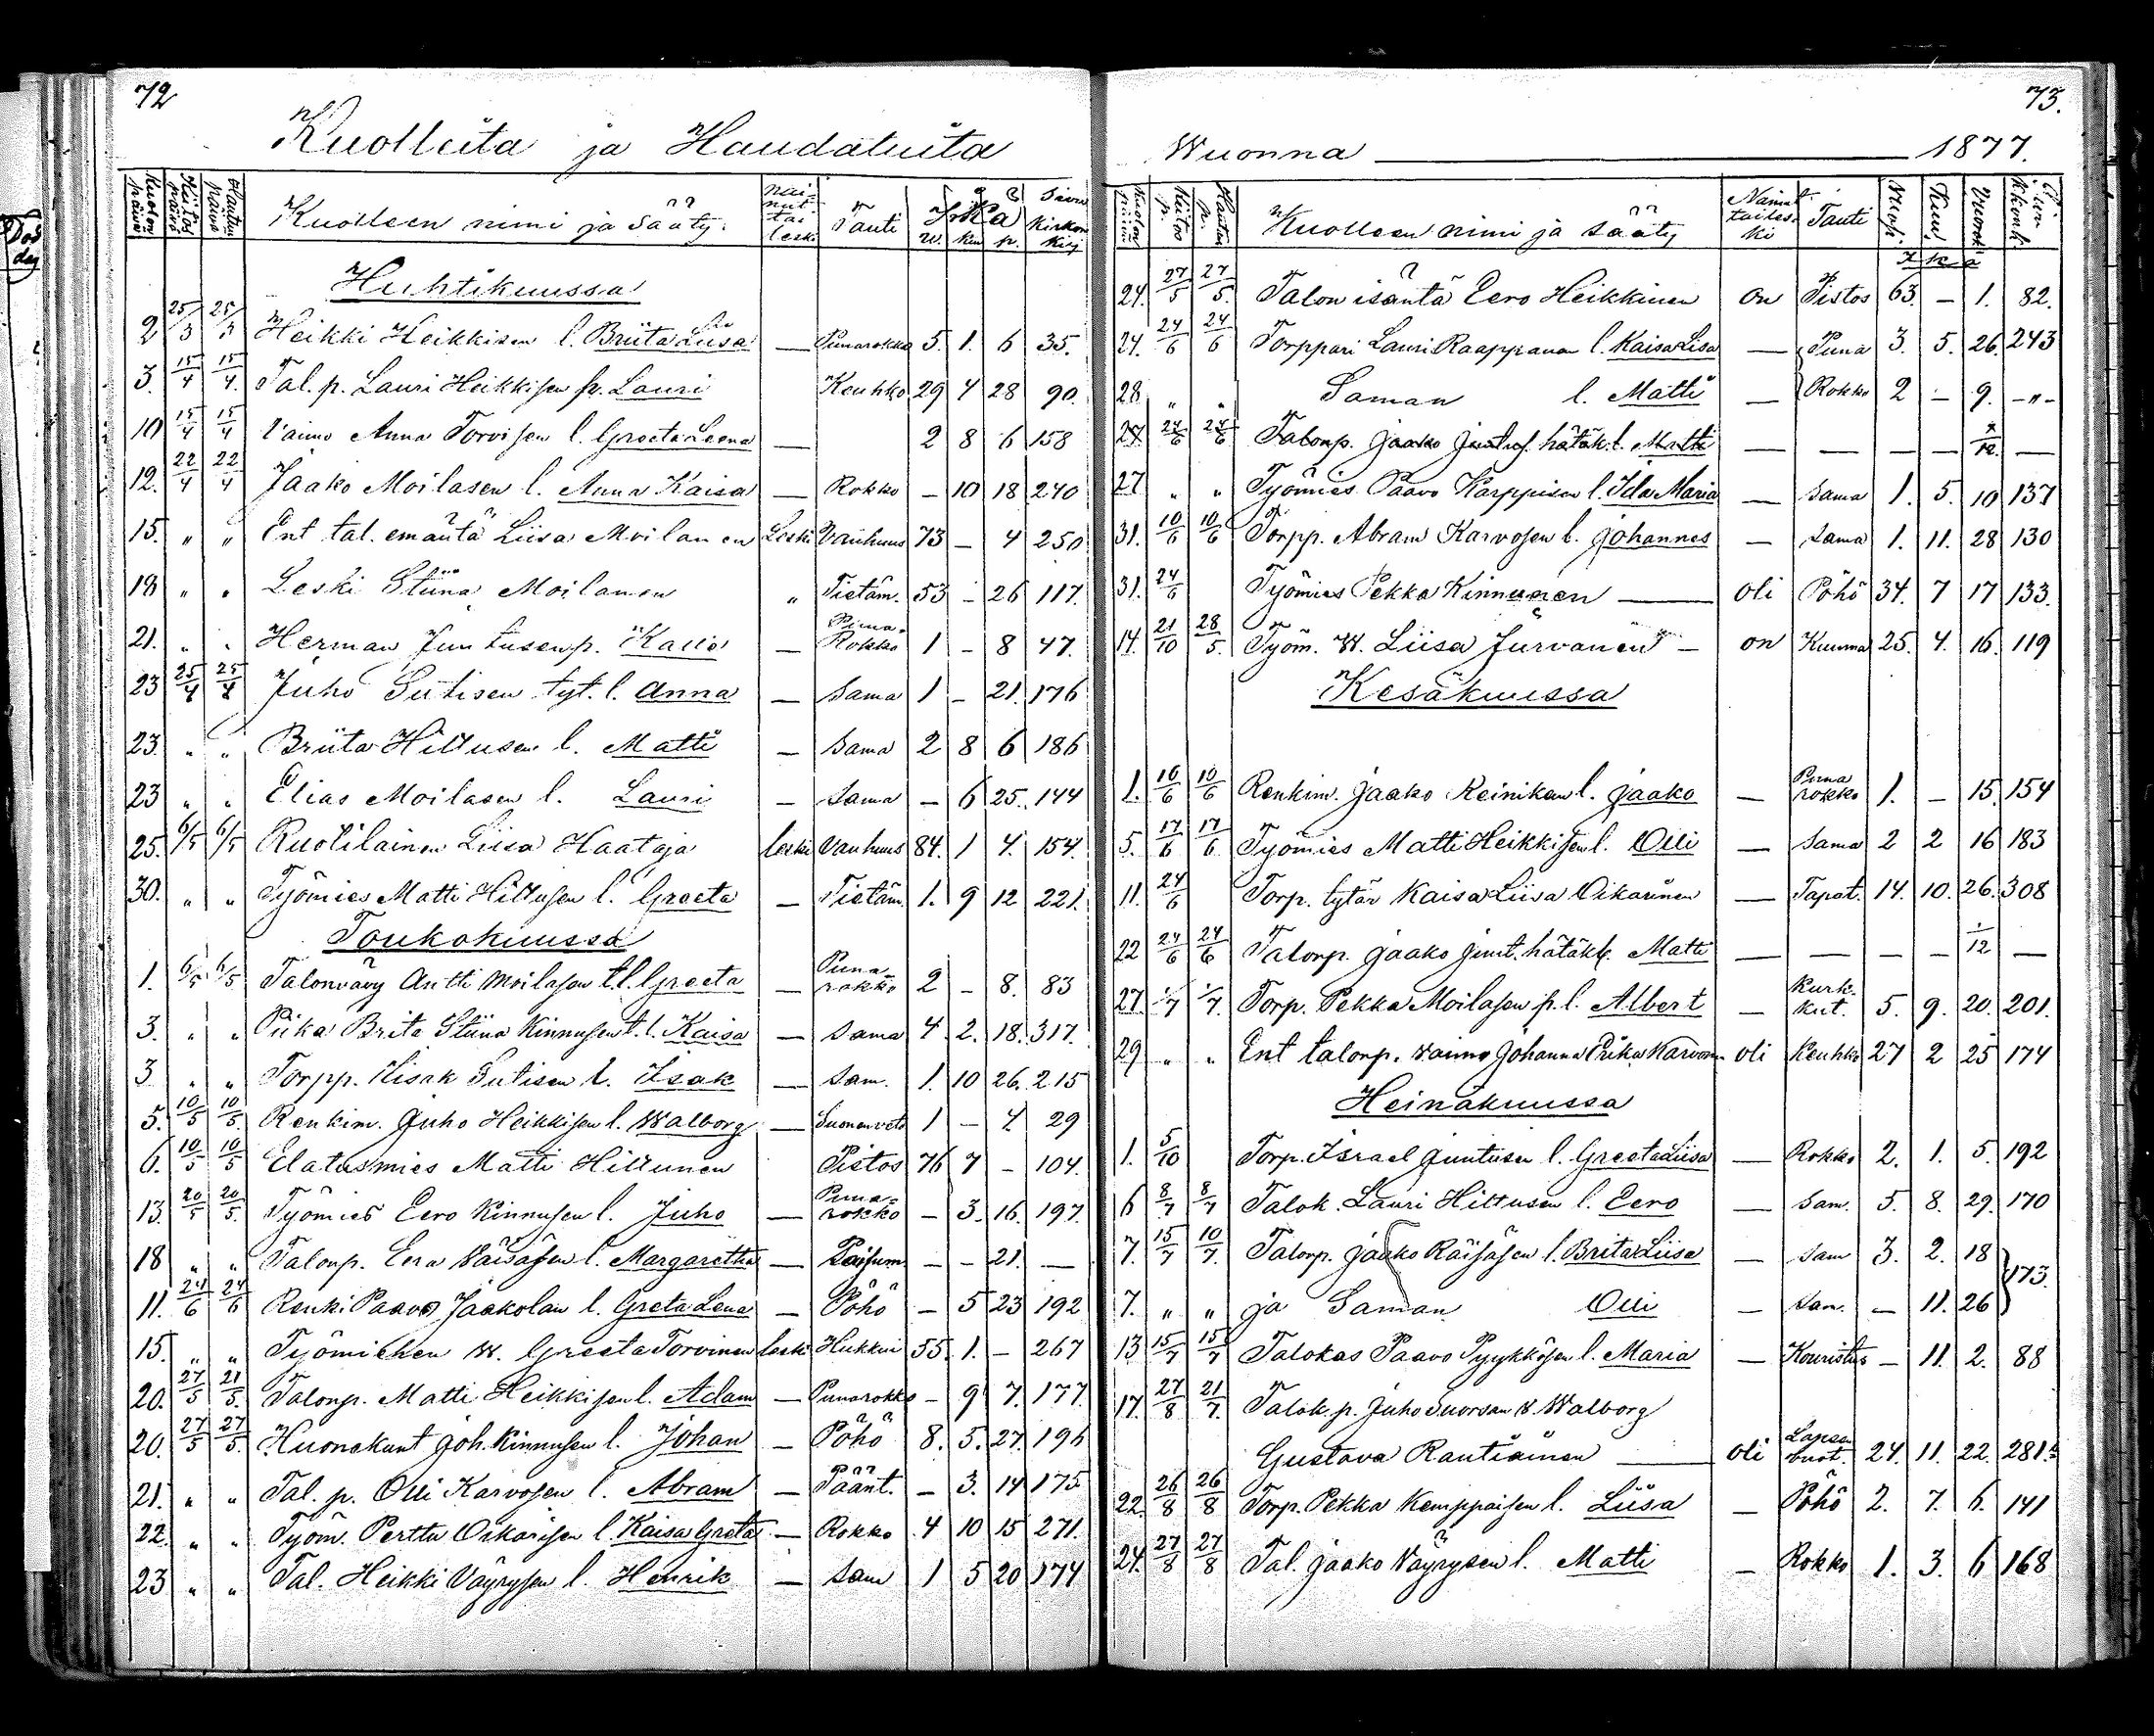 72
Kuolleita ja Haudatuita
Kuolon päivä | Kiitos päivä | Hautaus päivä | Kuolleen nimi ja Sääty. | Nai- nut tai leski | Tauti | Ikä w. kuu p. | Sivu Kirkon kirj
Huhtikuussa
2 25/3 25/3 Heikki Heikkisen l. Briita Liisa — Punarokko 5 1. 6 35.
3. 15/4 15/4. Tal. p. Lauri Heikkisen p. Lauri Keuhko 29 4 28 90.
10 15/4 15/4 Vaimo Anna Torvisen l. Greeta Leena — 2 8 6 158
12. 22/4 22/4 Jaako Moilasen l. Anna Kaisa — Rokko — 10 18 240
15. " " Ent tal. emäntä Liisa Moilanen Leski Vanhuus 73 — 4 250
18 " " Leski Stiina Moilanen " Pistäm. 53 — 26 117.
21. " " Herman Juntusen p. Kalle — Puna- Rokko 1 — 8 47.
23 25/4 25/4 Juho Sutisen tyt. l. Anna — Sama 1 — 21. 176
23. " " Briita Hiltusen l. Matti — Sama 2 8 6 186
23 " " Elias Moilasen l. Lauri — Sama — 6 25. 144
25. 6/5 6/5 Ruotilainen Liisa Haataja leski Vanhuus 84. 1 4. 154.
30. " " Työmies Matti Hiltusen l. Greeta — Pistäm. 1. 9 12 221.
Toukokuussa
1. 6/5 6/5 Talonvävy Antti Moilasen t.l. Greeta — Puna- rokko 2 — 8. 83
3. " " Piika Brita Stiina Kinnusen t. l. Kaisa — Sama 4. 2. 18. 317.
3 " " Torpp. Iisak Sutisen l. Isak — Sam. 1. 10 26. 215
5. 10/5 10/5. Renkim. Juho Heikkisen l. Walborg — Suonenveto 1 — 7 29
6. 10/5 10/5 Elatusmies Matti Hiltunen Pistos 76 7 — 104.
13. 20/5 20/5. Työmies Eero Kinnusen l. Juho — Puna- rokko — 3. 16. 197.
18 " " Talonp. Eera Väisäsen l. Margaretha — Paisum — — 21. —
11. 24/6 24/6 Renki Paavo Jaakolan l. Greta Lena — Pöhö — 5 23 192
15. " " Työmiehen w. Greeta Torvinen leski Hukkui 55. 1. — 267
20. 27/5 21/5. Talonp. Matti Heikkisen l. Adam — Punarokko — 9 7. 177.
20. 27/5 27/5. Huonekunt Joh. Kinnusen l. Johan — Pöhö 8. 5. 27. 196
21. " " Tal. p. Olli Karvosen l. Abram — Päänt. — 3. 14 175
22. " " Työm. Perttu Oikarisen l. Kaisa Greta — Rokko 4 10 15 271.
23 " " Tal. Heikki Väyrysen l. Henrik — Sam 1 5 20 174
73.
Wuonna 1877.
Kuolon päivä | Kiitos p. | Hautaus p. | Kuolleen nimi ja sääty | Nainut tai les- ki | Tauti | Wuosi. | Kuu. | Vuorok. | Ikä
24. 27/5 27/5. Talon isäntä Eero Heikkinen on Pistos 63. — 1. 82.
24. 24/6 24/6 Torppari Lauri Raappanan l. Kaisa Lisa — Puna 3. 5. 26. 243
28 " " Saman l. Matti — Rokko 2 — 9. —"—
27. 24/6 24/6 Talonp. Jaako Juntus. hätäk. l. Matti — — — — 1/12. —
27 " " Työmies Paavo Karppisen l. Ida Maria — Sama 1. 5. 10 137
31. 10/6 10/6 Torpp. Abram Karvosen l. Johannes — Sama 1. 11. 28 130
31. 24/6 Työmies Pekka Kinnunen — oli Pöhö 34. 7 17 133.
14. 21/10 28/5. Työm. W. Liisa Jurvanen — on Kuuma 25. 4. 16. 119
Kesäkuussa
1. 10/6 10/6 Renkim. Jaako Keinäsen l. Jaako — Puna rokko 1. — 15. 154
5. 17/6 17/6 Työmies Matti Heikkisen l. Olli — Sama 2 2 16 183
11. 24/6 Torp. tytär Kaisa Liisa Oikarinen — Tapat. 14. 10. 26. 308
22 24/6 24/6 Talonp. Jaako Junt. hätäk l. Matti — — — — 1/12 —
27. 1/7 1/7. Torp. Pekka Moilasen p. l. Albert — Kurk- kut. 5. 9. 20. 201.
29 " " Ent talonp. vaimo Johanna Erika Karvonen oli Keuhko 27 2 25 174
Heinäkuussa
1. 5/10 Torp. Israel Juntusen l. Greeta Liisa — Rokko 2. 1. 5. 192
6 8/7 8/7 Talok. Lauri Hiltusen l. Eero — Sam. 5. 8. 29. 170
7. 15/7 10/7. Talonp. Jaako Räisäsen l. Brita Liisa — Sam 3. 2. 18 173.
7. " " ja Saman Olli — Sam. — 11. 26
13 15/7 15/7 Talokas Paavo Pyykkösen l. Maria — Kouristus — 11. 2. 88
17. 27/8 21/7. Talok. p. Juho Suorsan v. Walborg
Gustava Rautiainen — oli Lapsen buot. 24. 11. 22. 281.
22. 26/8 26/8 Torp. Pekka Kemppaisen l. Liisa — Pöhö 2. 7. 6. 141
24. 27/8 27/8 Tal. Jaako Väyrysen l. Matti — Rokko 1. 3. 6 168